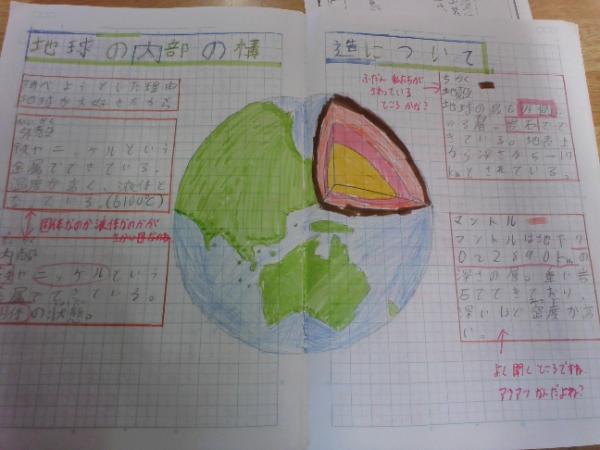 地球の内部の構造について
調べようとした理由
地球が大好きだから
外核
鉄やニッケルという
金属でできている。
温度が高く、液体と
なっている。(6100℃)
固体なのか液体なのかが
ちがい目なのね
内核
鉄やニッケルという
金属でできている。
固体の状態。
ふだん私たちが
さわっている
ところかな?
ちかく
地殻
地球の最も外側に
ある層。岩石ででき
ている。地表
から深さ5〜
kmとされている。
マントル
マントルは地下
2890kmの
深さの層。重い岩
石でできており、
深いほど密度が高
い。
よく聞くところですね
マグマ かんだよね?